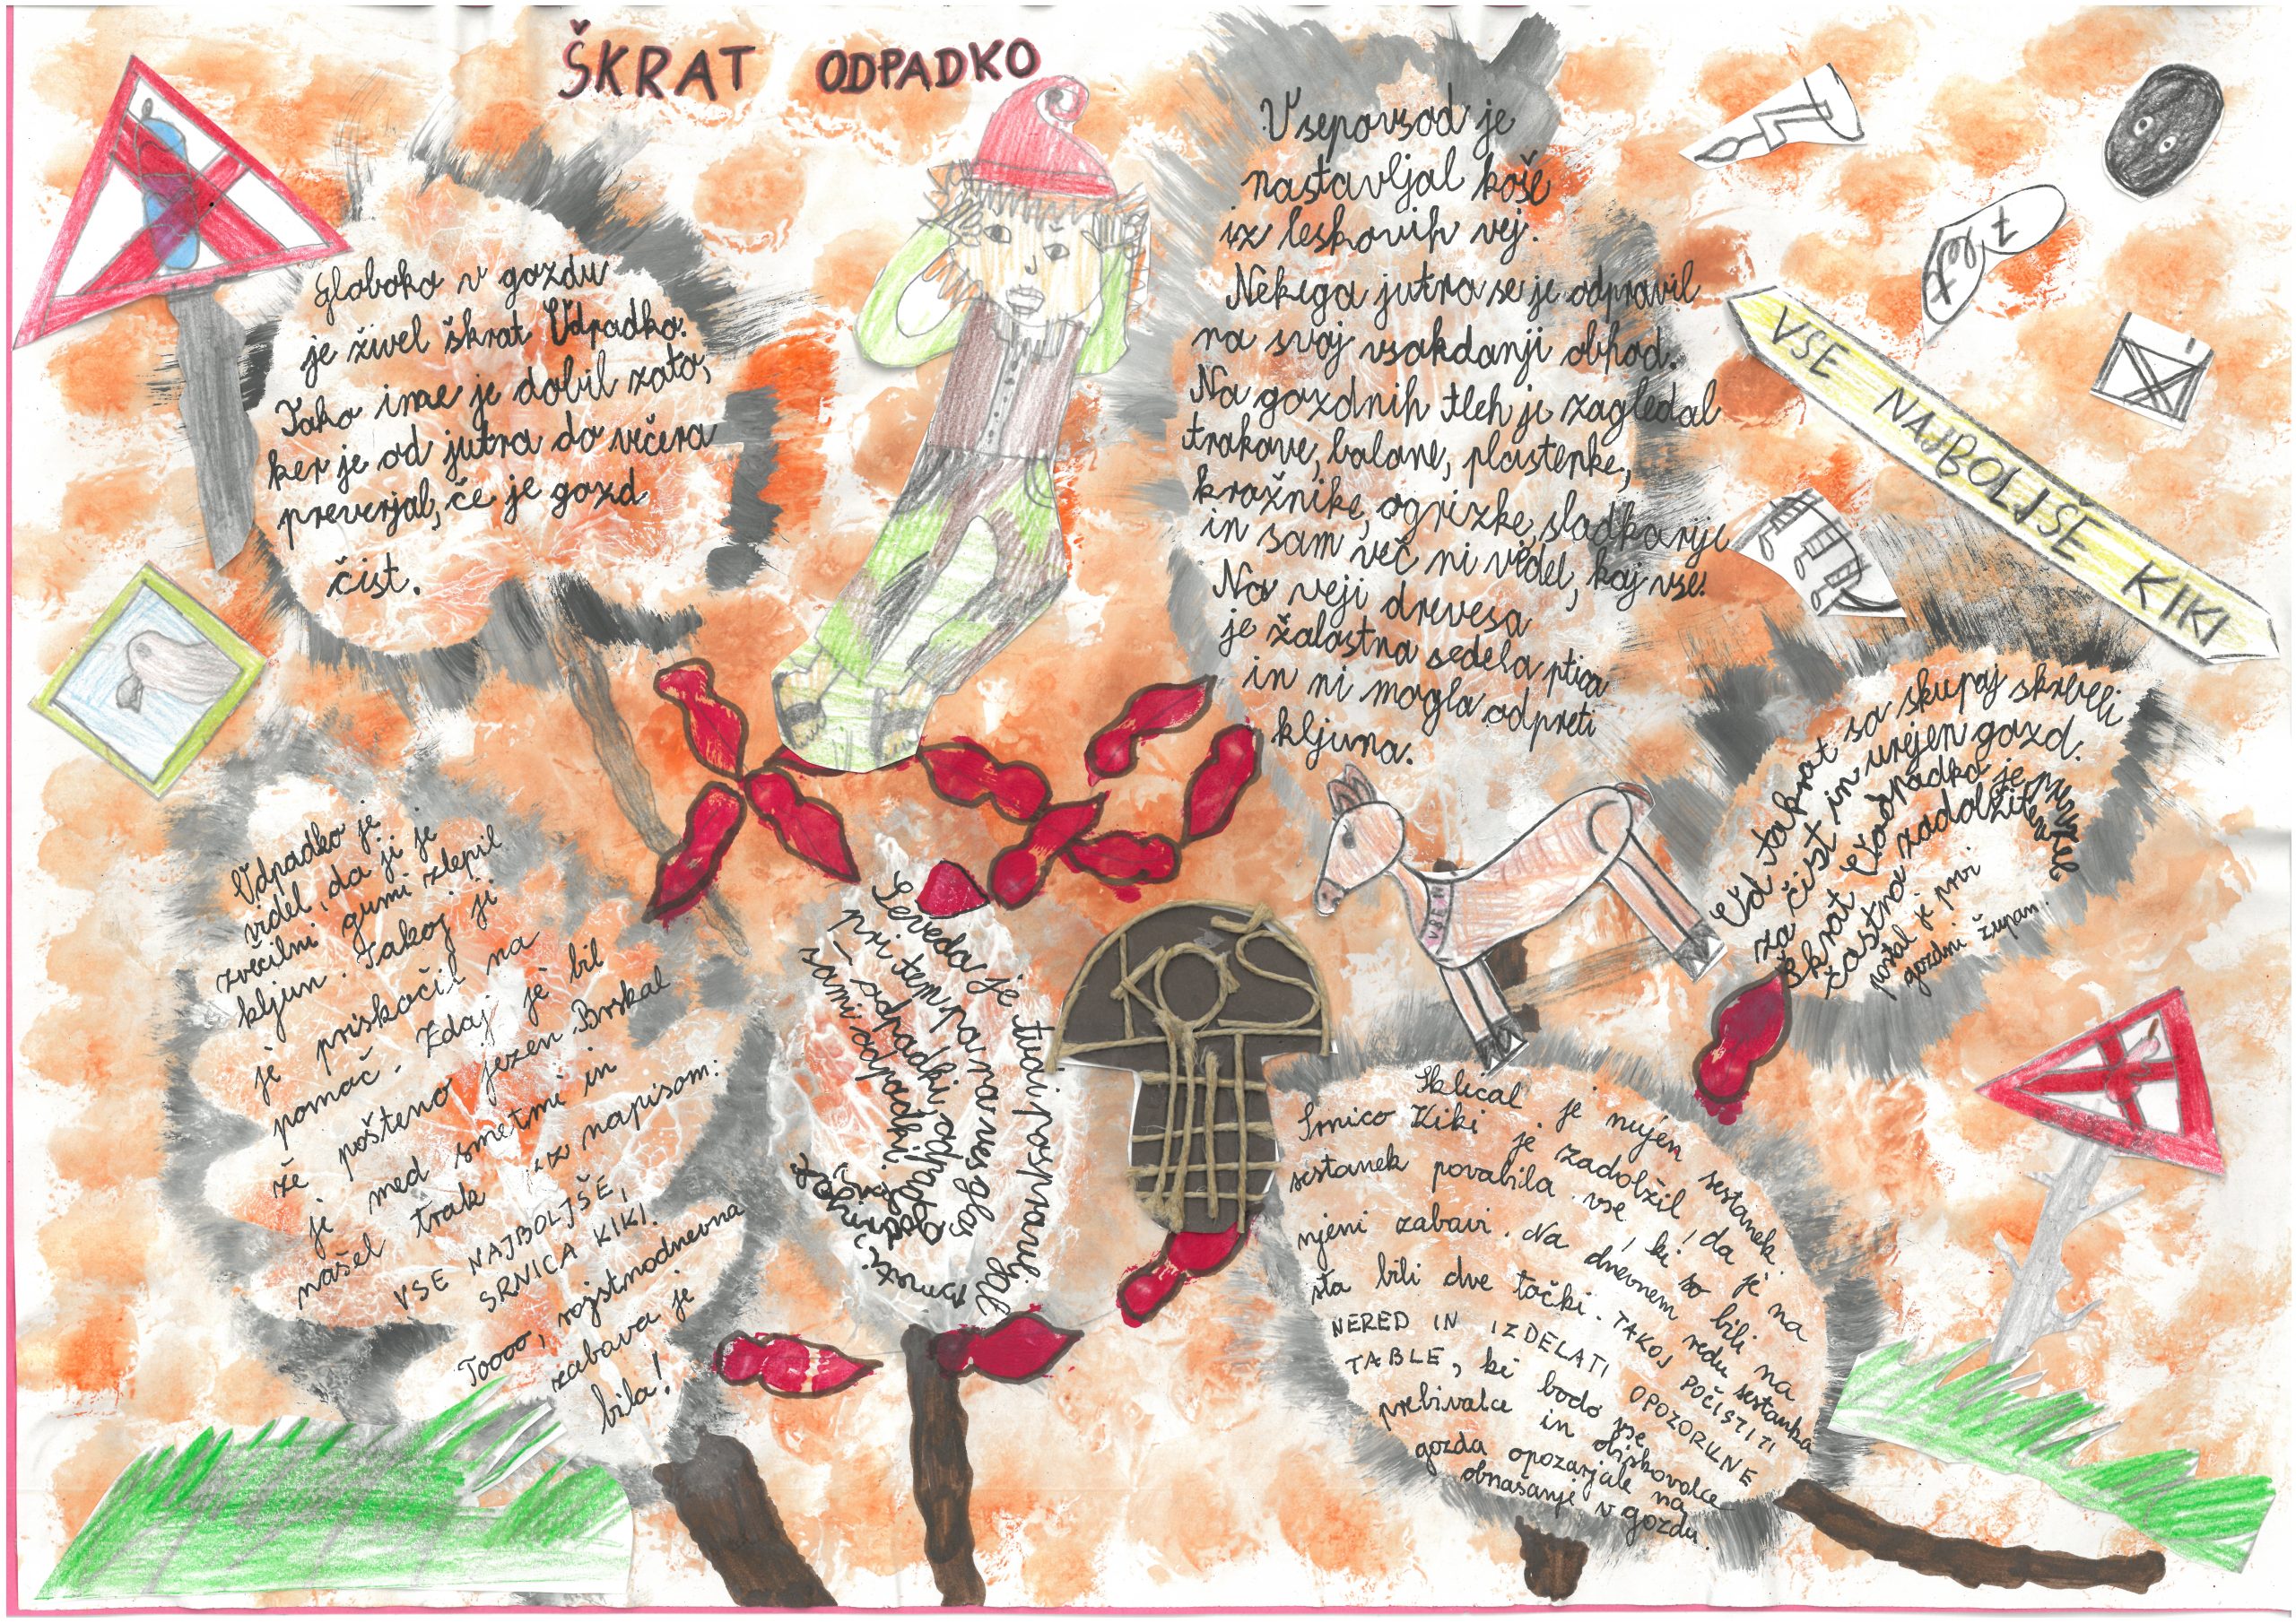 ŠKRAT ODPADKO
Globoko v gozdu
je živel škrat Odpadko.
Tako ime je dobil zato,
ker je od jutra do večera
preverjal, če je gozd
čist.
Vsepovsod je
nastavljal koše
iz leskovih vej.
Nekega jutra se je odpravil
na svoj vsakdanji obhod.
Na gozdnih tleh je zagledal
trakove, balone, plastenke,
krožnike, ogrizke, sladkarije
in sam več ni vedel, kaj vse!
Na veji drevesa
je žalostna sedela ptica
in ni mogla odpreti
kljuna.
Odpadko je
videl, da ji je
žvečilni gumi zlepil
kljun. Takoj ji
je priskočil na
pomoč. Zdaj je bil
že pošteno jezen. Brskal
je med smetmi in
našel trak iz napisom:
VSE NAJBOLJŠE,
SRNICA KIKI.
Toooo, rojstnodnevna
zabava je
bila!
Sklical je nujen sestanek.
Srnico Kiki je zadolžil, da je na
sestanek povabila vse, ki so bili na
njeni zabavi. Na dnevnem redu sestanka
sta bili dve točki. TAKOJ POČISTITI
NERED IN IZDELATI OPOZORILNE
TABLE, ki bodo vse
prebivalce in obiskovalce
gozda opozarjale na
obnašanje v gozdu.
Seveda je tudi pospravljal
pri tem pa na ves glas
odpadki, odpadki
sami odpadki.
KOŠ
VSE N
Od takrat so skupaj skrbeli
za čist in urejen gozd.
Škrat Odpadko je prevzel
častno zadolžitev
postal je prvi
gozdni župan.
VSE NAJBOLJŠE KIKI
7 let